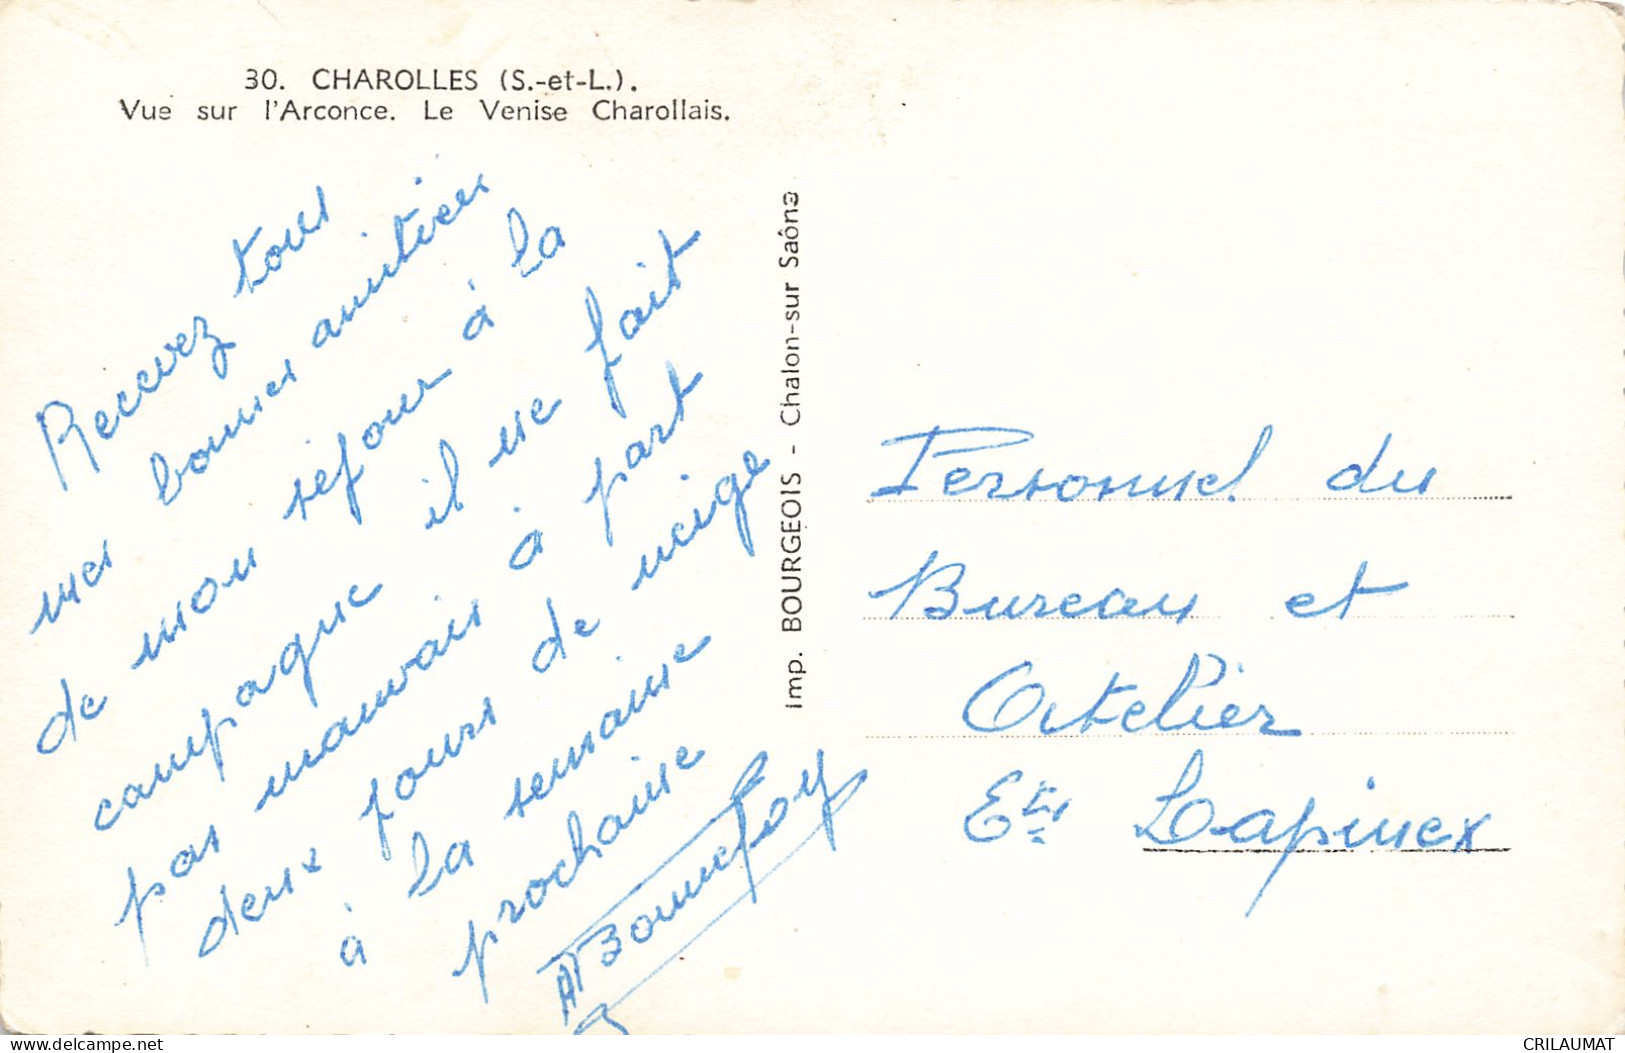 30. CHAROLLES (S.-et-L.).
Vue sur l'Arconce. Le Venise Charollais.
Recevez tous
mes bonnes amitiées
de mon séjour à la
campagne il ne fait
pas mauvais à part
deux jours de neige
à la semaine
prochaine
ABonnefoy
Imp. BOURGEOIS - Chalon-sur Saône
Personnel du
Bureau et
Atelier
Ets Lapinex
delcampe.net
CRILAUMAT